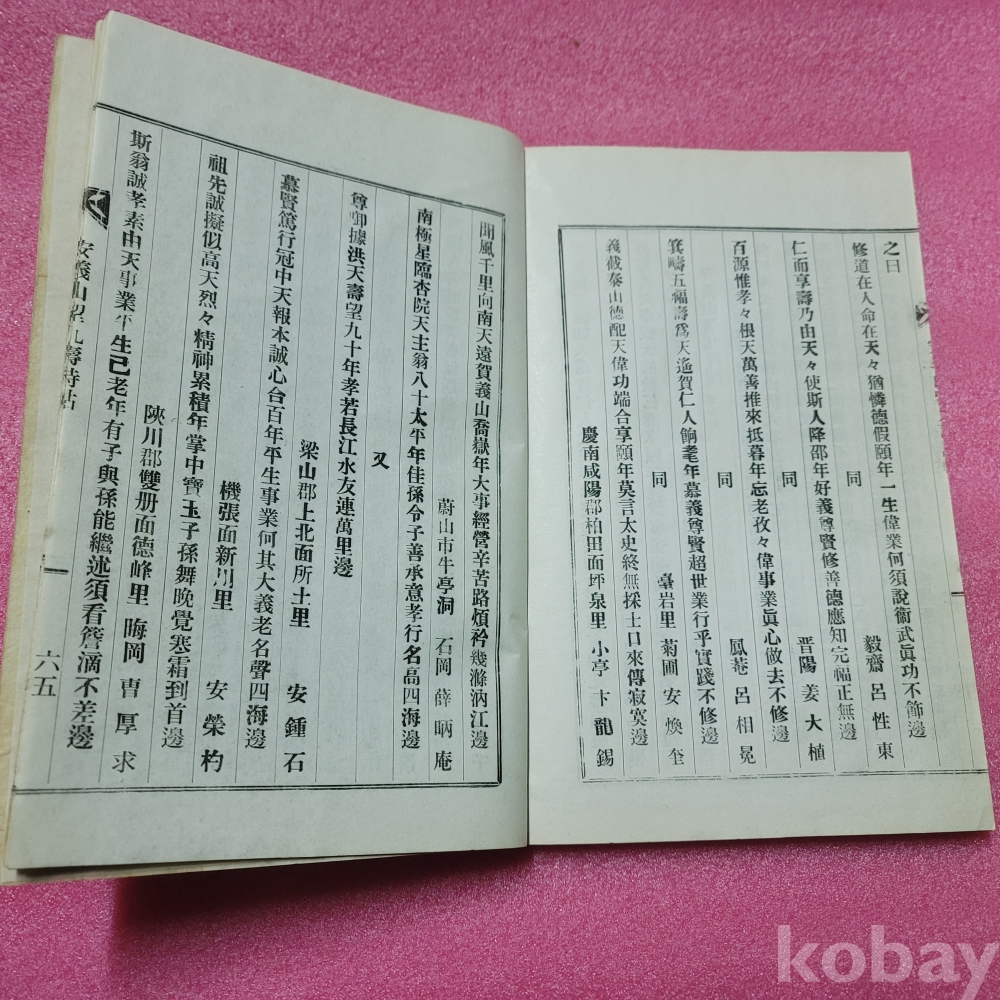 之日
修道在人命在天々猶憐德假頤年一生偉業何須說衞武眞功不飾邊
同 毅齋 呂性東
仁而享壽乃由天々使斯人降邵年好義尊賢修善德應知完福正無邊
同 晋陽 姜大植
百源惟孝々根天萬善推來抵暮年忘老孜々偉事業眞心做去不修邊
同 鳳菴 呂相冕
箕疇五福壽爲天遙賀仁人餉耄年慕義尊賢超世業行乎實踐不修邊
同 臺岩里 菊圃 安煥奎
義截泰山德配天偉功端合享頤年莫言太史終無採士口來傳寂寞邊
慶南咸陽郡柏田面坪泉里 小亭 卞龍錫
聞風千里向南天遠賀義山喬嶽年大事經營辛苦路煩衿幾滌汭江邊
蔚山市牛亭洞 石岡 薛昞庵
南極星臨杏院天主翁八十太平年佳孫令子善承意孝行名高四海邊
又
尊卹據洪天壽望九十年孝若長江水友連萬里邊
梁山郡上北面所土里 安鍾石
慕賢篤行冠中天報本誠心台百年平生事業何其大義老名聲四海邊
機張面新川里 安榮杓
祖先誠擬似高天烈々精神累積年掌中寶玉子孫舞晚覺寒霜到首邊
陜川郡雙册面德峰里 晦岡 曺厚求
斯翁誠孝素由天事業平生己老年有子與孫能繼述須看簷滴不差邊
安義山望九壽詩帖
六五
kobay